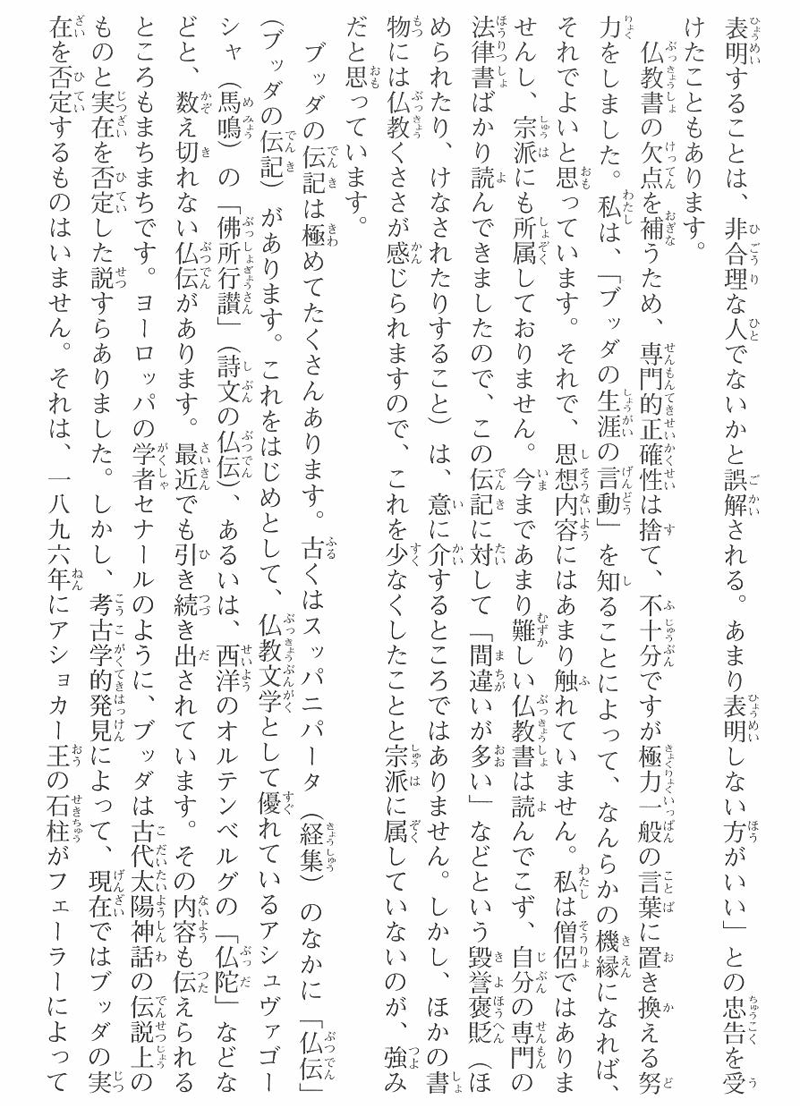 表明することは、非合理な人でないかと誤解される。あまり表明しない方がいい」との忠告を受
けたこともあります。
仏教書の欠点を補うため、専門的正確性は捨て、不十分ですが極力一般の言葉に置き換える努
力をしました。私は、「ブッダの生涯の言動」を知ることによって、なんらかの機縁になれば、
それでよいと思っています。それで、思想内容にはあまり触れていません。私は僧侶ではありま
せんし、宗派にも所属しておりません。今まであまり難しい仏教書は読んでこず、自分の専門の
法律書ばかり読んできましたので、この伝記に対して「間違いが多い」などという毀誉褒貶（ほ
められたり、けなされたりすること）は、意に介するところではありません。しかし、ほかの書
物には仏教くささが感じられますので、これを少なくしたことと宗派に属していないのが、強み
だと思っています。
ブッダの伝記は極めてたくさんあります。古くはスッパニパータ（経集）のなかに「仏伝」
（ブッダの伝記）があります。これをはじめとして、仏教文学として優れているアシュヴァゴー
シャ（馬鳴）の「佛所行讃」（詩文の仏伝）、あるいは、西洋のオルテンベルグの「仏陀」などな
どと、数え切れない仏伝があります。最近でも引き続き出されています。その内容も伝えられる
ところもまちまちです。ヨーロッパの学者セナールのように、ブッダは古代太陽神話の伝説上の
ものと実在を否定した説すらありました。しかし、考古学的発見によって、現在ではブッダの実
在を否定するものはいません。それは、一八九六年にアショカー王の石柱がフェーラーによって